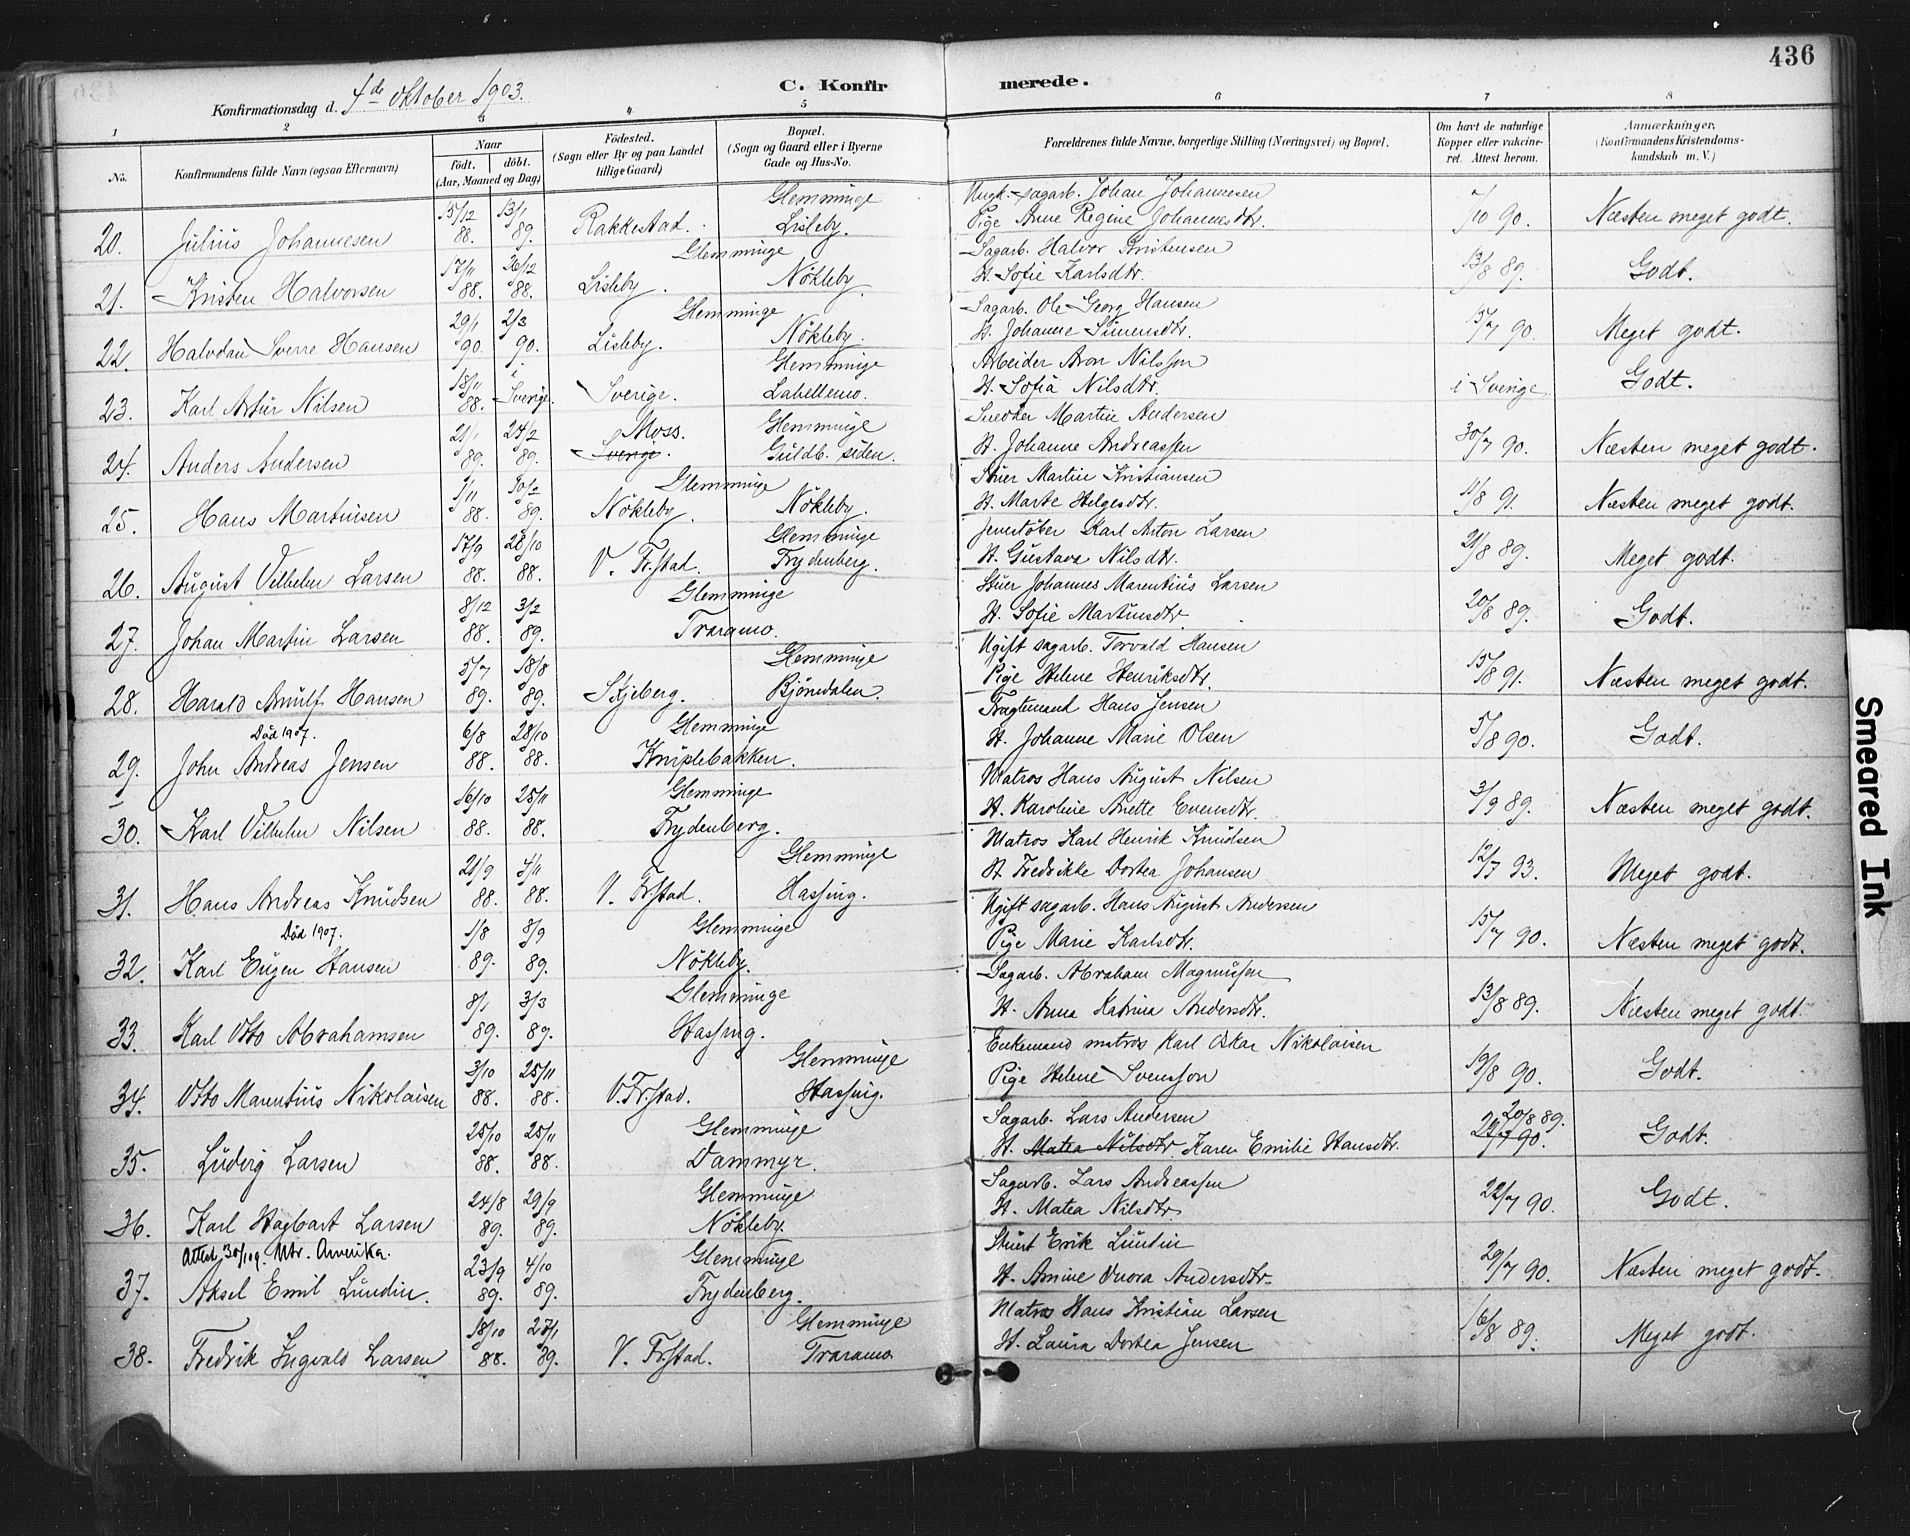 436
Konfirmationsdag d. 4de Oktober 1903.
C. Konfirmerede.
1 2 3 4 5 6 7 8
No. Konfirmandens fulde Navn (ogsaa Efternavn) Naar födt. döbt. (Aar, Maaned og Dag) Födested. (Sogn eller By og paa Landet tillige Gaard) Bopæl. (Sogn og Gaard eller i Byerne Gade og Hus-No. Forældrenes fulde Navne, borgerlige Stilling (Næringsvei) og Bopæl. Om havt de naturlige Kopper eller vakcineret. Attest herom. Anmærkninger, (Konfirmandens Kristendomskundskab m. V.)
20. Julius Johannesen 15/12 88. 13/1 89. Rakkestad. Glemminge Lisleby. Ungk. sagarb. Johan Johannesen
Pige Anne Regine Johannesdtr. 7/10 90. Næsten meget godt.
21. Kristen Halvorsen 17/11 88. 26/12 88. Glemminge Lisleby. Nökleby. Sagarb. Halvor Kristensen
H. Sofie Karlsdtr. 13/8 89. Godt.
22. Halvdan Sverre Hansen 29/1 90. 2/3 90. Glemminge Lisleby. Nökleby. Sagarb. Ole Georg Hansen
H. Johanne Simensdtr. 15/7 90. Meget godt.
23. Karl Artur Nilsen 18/11 88. i Sverige. Sverige. Glemminge Labellemo. Arbeider Aron Nilsson
H. Sofia Nilsdtr. i Sverige Godt.
24. Anders Andersen 21/1 89. 24/2 89. Moss. Sverige. Glemminge Guldb. siden. Snedker Martin Andersen
H. Johanne Andreassen 30/7 90. Næsten meget godt.
25. Hans Martinsen 1/11 88. 10/2 89. Glemminge Nökleby. Nökleby. Stuer Martin Kristiansen
H. Marte Helgesdtr. 4/8 91. Næsten meget godt.
26. August Vilhelm Larsen 17/9 88. 28/10 88. V. Fr.stad. Glemminge Frydenberg. Jernstöber Karl Anton Larsen
H. Gustava Nilsdtr. 21/8 89. Meget godt.
27. Johan Martin Larsen 8/12 88. 3/2 89. Glemminge Traramo. Stuer Johannes Marentius Larsen
H. Sofie Martinsdtr. 20/8 89. Godt.
28. Harald Arnulf Hansen 5/7 89. 18/8 89. Skjeberg. Glemminge Björnedalen. Ugift sagarb. Torvald Hansen
Pige Helene Henriksdtr. 15/8 91. Næsten meget godt.
Död 1907.
29. John Andreas Jensen 6/8 88. 28/10 88. Glemminge Kniplebakken. Fragtemand Hans Jensen
H. Johanne Marie Olsen 5/8 90. Godt.
30. Karl Vilhelm Nilsen 16/10 88. 25/11 88. Glemminge Frydenberg. Matros Hans August Nilsen
H. Karoline Anette Evensdtr. 3/9 89. Næsten meget godt.
31. Hans Andreas Knudsen 21/9 88. 4/11 88. V. Fr.stad. Glemminge Hassing. Matros Karl Henrik Knudsen
H. Fredrikke Dortea Johansen 12/7 93. Meget godt.
Död 1907.
32. Karl Eugen Hansen 1/8 89. 8/9 89. Glemminge Nökleby. Ugift sagarb. Hans August Andersen
Pige Marie Karlsdtr. 15/7 90. Næsten meget godt.
33. Karl Otto Abrahamsen 8/1 89. 3/3 89. Glemminge Hassing. Sagarb. Abraham Magnussen
H. Anna Katrina Andersdtr. 13/8 89. Næsten meget godt.
34. Otto Marentius Nikolaisen 3/10 88. 25/11 88. V. Fr.stad. Glemminge Hassing. Enkemand matros Karl Oskar Nikolaisen
Pige Helene Svensson 19/8 90. Godt.
35. Ludvig Larsen 25/10 88. 25/11 88. Glemminge Dammyr. Sagarb. Lars Andersen
H. Matea Nilsdtr. Karen Emilie Hansdtr. 20/8 89. 22/7 90. Godt.
36. Karl Hagbart Larsen 24/8 89. 29/9 89. Glemminge Nökleby. Sagarb. Lars Andreassen
H. Matea Nilsdtr. 22/7 90. Godt.
Attest 30/1 09. Utv. Amerika.
37. Aksel Emil Lundin. 23/9 89. 4/10 89. Glemminge Frydenberg. Stuert Erik Lundin
H. Amine Andersdtr. 29/7 90. Næsten meget godt.
38. Fredrik Ingvald Larsen 18/10 88. 27/1 89. V. Fr.stad. Glemminge Traramo. Matros Hans Kristian Larsen
H. Laura Dortea Jensen 16/8 89. Meget godt.
Smeared Ink